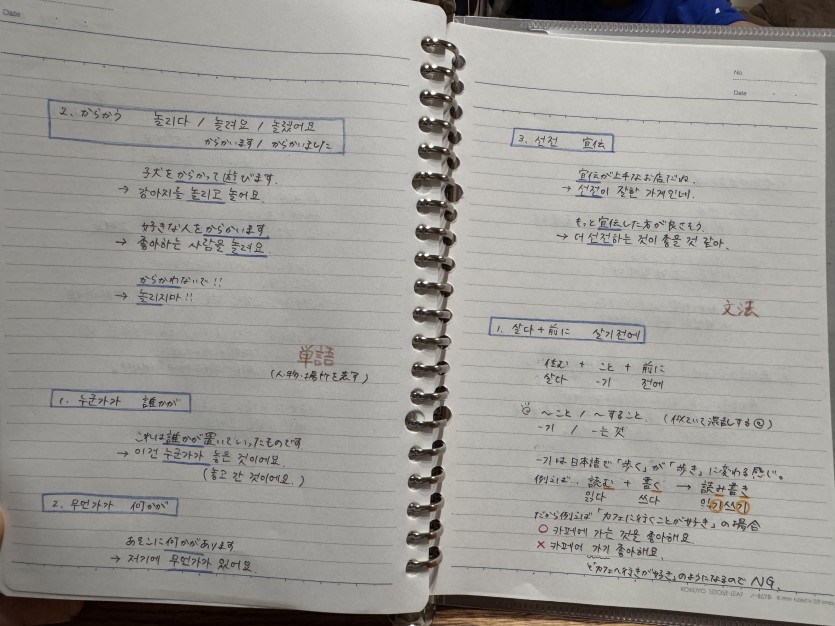 Date
2. からかう 놀리다 / 놀려요 / 놀렸어요
からかいます / からかいました
子犬をからかって遊びます.
→ 강아지를 놀리고 놀어요.
好きな人をからかいます
→ 좋아하는 사람을 놀려요.
からかわないで!!
→ 놀리지마!!
単語
(人・物・場所を表す)
1. 누군가가 誰かが
これは誰かが置いていったものです.
→ 이건 누군가가 놓은 것이에요.
(놓고 간 것이에요.)
2. 무언가가 何かが
あそこに何かがあります
→ 저기에 무언가가 있어요.
No
Date
3. 선전 宣伝
宣伝が上手なお店だね.
→ 선전이 잘한 가게인네.
もっと宣伝した方が良さそう.
→ 더 선전하는 것이 좋을 것 같아.
文法
1. 살다+前に 살기전에
住む + こと + 前に
살다 -기 전에
~こと / ~すること. (似ていて混乱する)
-기 / -는 것
-기は日本語で「歩く」が「歩き」に変わる感じ。
例えば. 読む + 書く → 読み書き
읽다 쓰다 읽기쓰기
だから例えば「カフェに行くことが好き」の場合
○ 카페에 가는 것을 좋아해요
× 카페에 가기 좋아해요.
"カフェへ行きが好き"のようになるので NG.